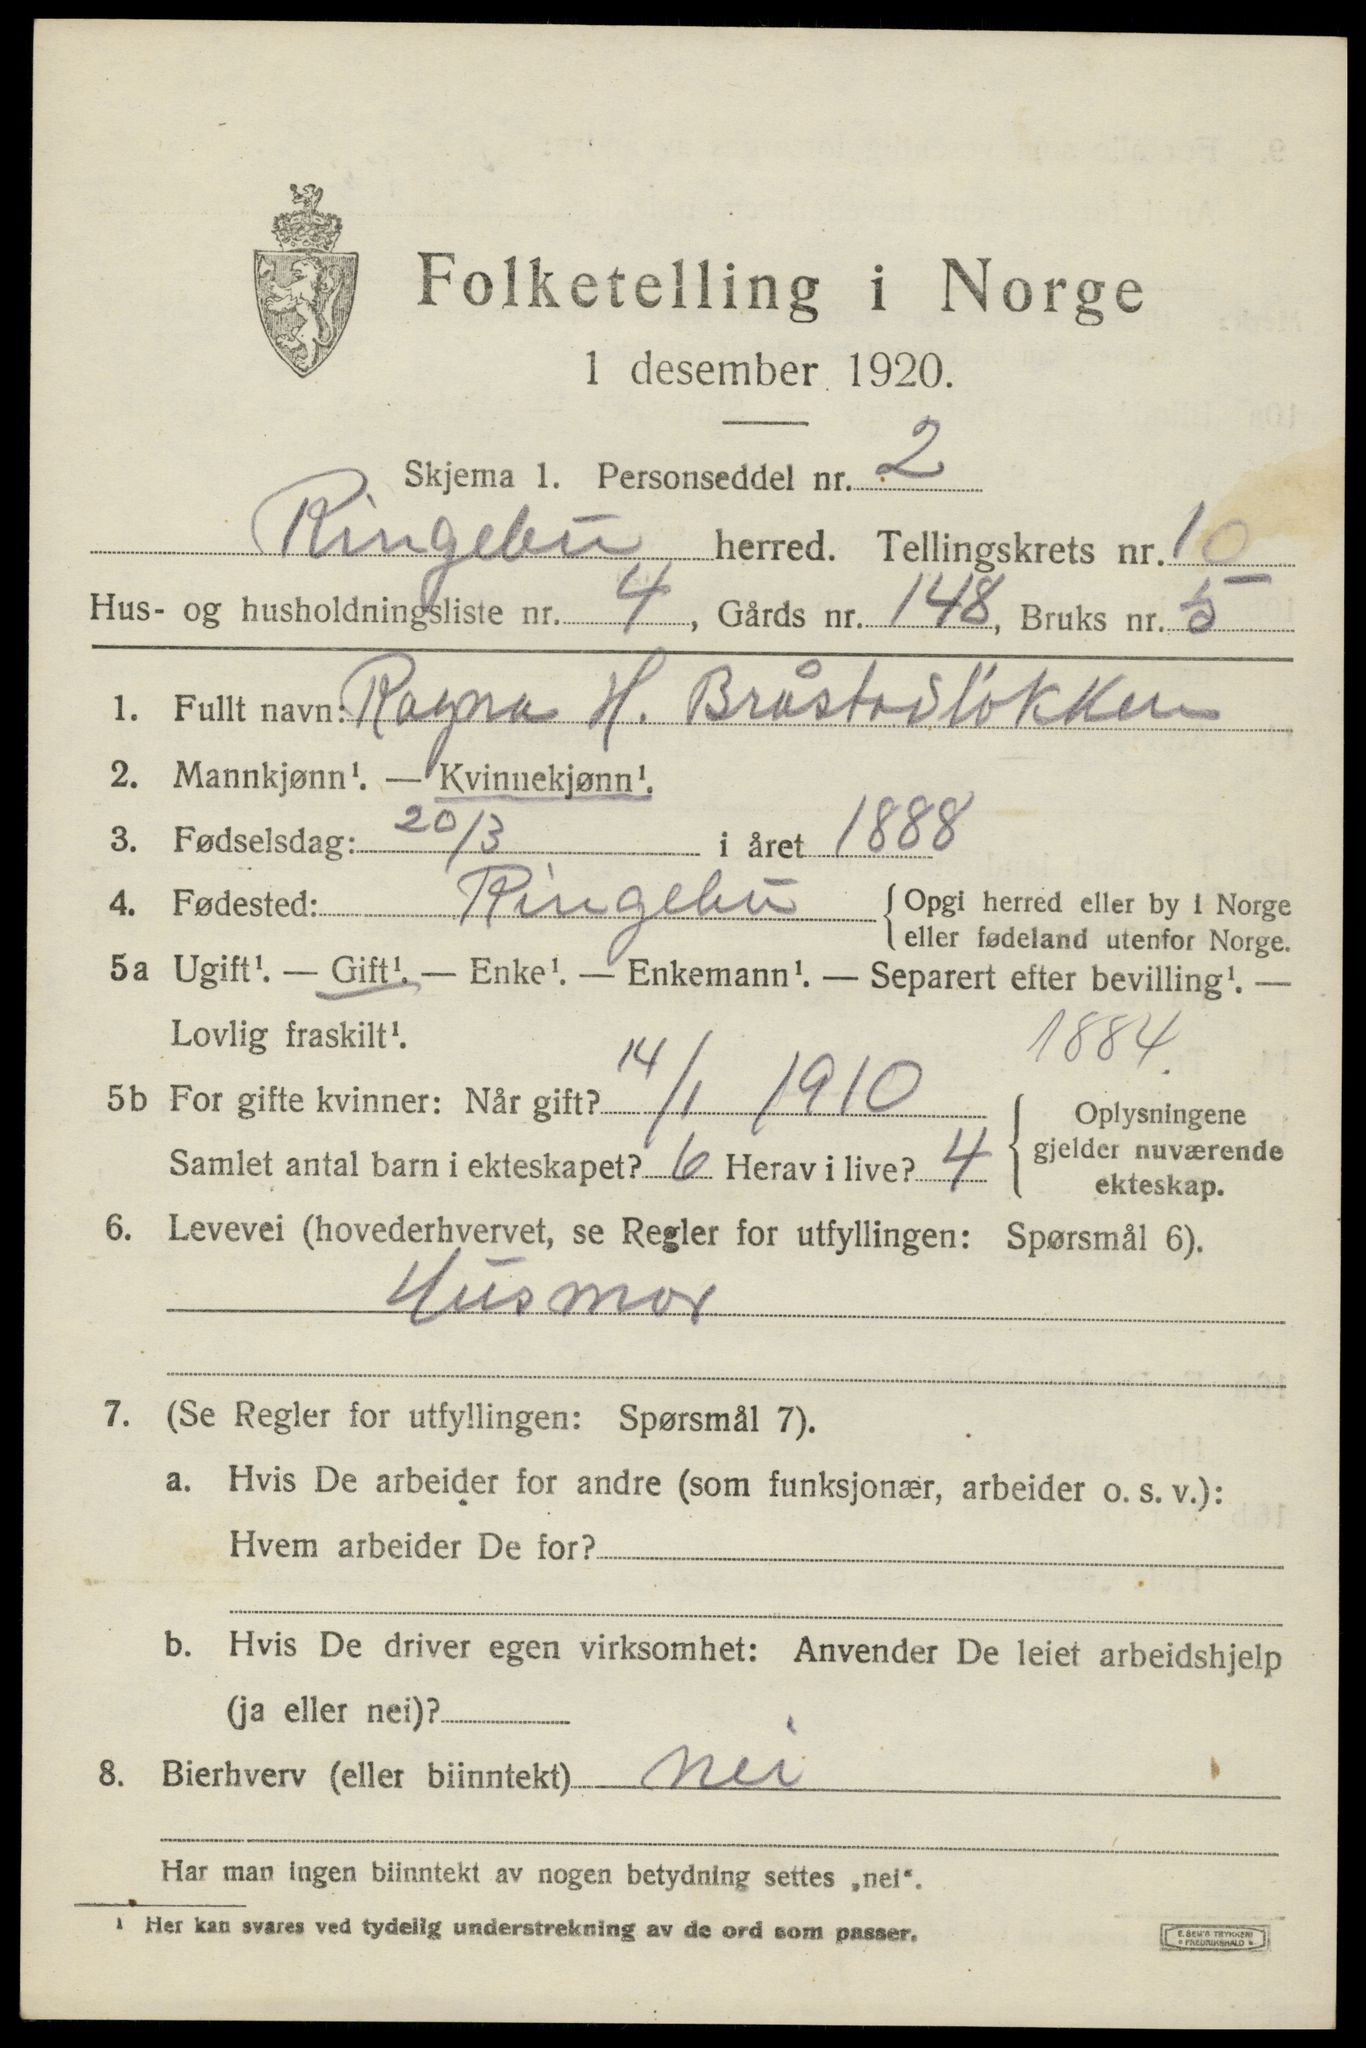 Folketelling i Norge
1 desember 1920.
Skjema 1. Personseddel nr. 2
Ringebu herred. Tellingskrets nr. 10
Hus- og husholdningsliste nr. 4, Gårds nr. 148, Bruks nr. 5
1. Fullt navn: Ragna H. Bråstadløkken
2. Mannkjønn¹. — Kvinnekjønn¹.
3. Fødselsdag: 20/3 i året 1888
4. Fødested: Ringebu {Opgi herred eller by i Norge
eller fødeland utenfor Norge.
5a Ugift¹. — Gift¹. — Enke¹. — Enkemann¹. — Separert efter bevilling¹. —
Lovlig fraskilt¹.
1884.
5b For gifte kvinner: Når gift? 14/1 1910
Samlet antal barn i ekteskapet? 6 Herav i live? 4
Oplysningene
gjelder nuværende
ekteskap.
6. Levevei (hovederhvervet, se Regler for utfyllingen: Spørsmål 6).
Husmor
7. (Se Regler for utfyllingen: Spørsmål 7).
a. Hvis De arbeider for andre (som funksjonær, arbeider o. s. v.):
Hvem arbeider De for?
b. Hvis De driver egen virksomhet: Anvender De leiet arbeidshjelp
(ja eller nei)?
8. Bierhverv (eller biinntekt) nei
Har man ingen biinntekt av nogen betydning settes „nei“.
¹ Her kan svares ved tydelig understrekning av de ord som passer.
E. SEM'S TRYKKERI
FREDRIKSHALD